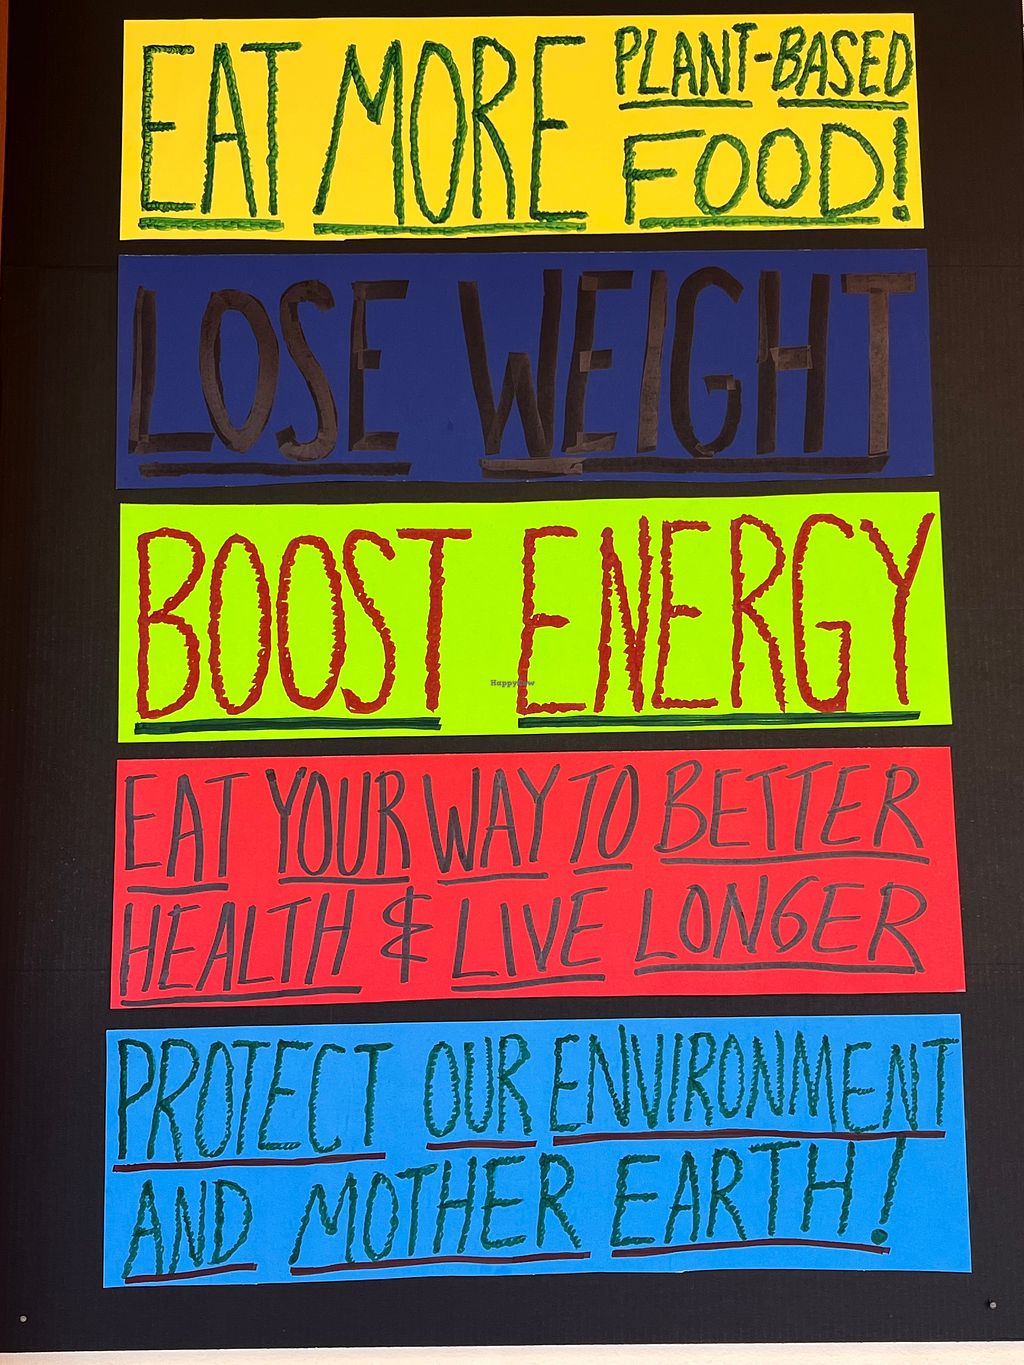 EAT MORE PLANT-BASED
FOOD!
LOSE WEIGHT
BOOST ENERGY
HappyCow
EAT YOUR WAY TO BETTER
HEALTH & LIVE LONGER
PROTECT OUR ENVIRONMENT
AND MOTHER EARTH!